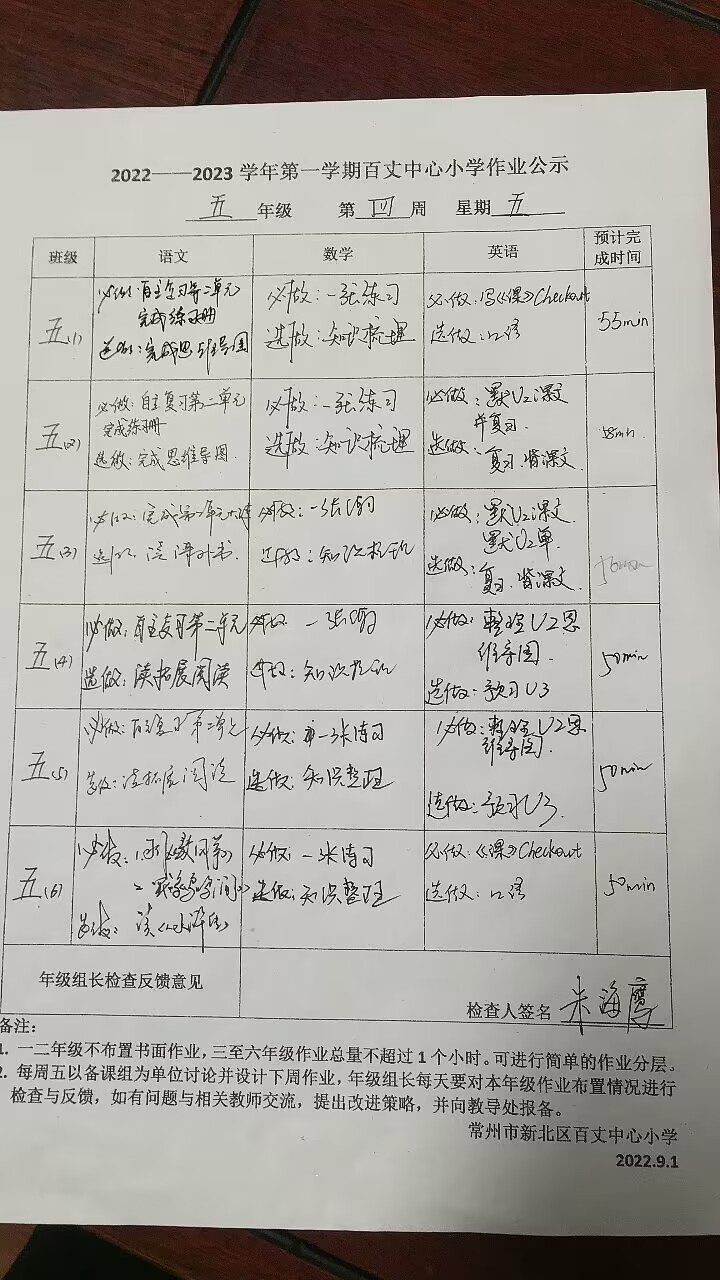 2022——2023 学年第一学期百丈中心小学作业公示
五 年级 第 四 周 星期 五
班级 语文 数学 英语 预计完成时间
五(1)
必做:自主复习第二单元
完成练习册
选做:完成思维导图
必做:一张练习
选做:知识梳理
必做:写《课》Checkout
选做:口语
55min
五(2)
必做:自主复习第二单元
完成练习册
选做:完成思维导图.
必做:一张练习
选做:知识梳理
必做:默U2课文
并复习.
选做:复习.背课文.
58min.
五(3)
必做:完成第二单元
选做:读课外书.
必做:一张练习
选做:知识梳理
必做:默U2课文.
默U2单.
选做:复习.背课文.
五(4)
必做:自主复习第二单元
选做:读拓展阅读
必做:一张练习
选做:知识梳理
必做:整理U2思
维导图.
选做:预习U3
50min
五(5)
必做:自主复习第二单元
选做:读拓展阅读
必做:一张练习
选做:知识整理
必做:整理U2思
维导图.
选做:预习U3.
50min
五(6)
必做:1.
2.
选做:读《水浒传》
必做:一张练习
选做:知识整理
必做:《课》Checkout
选做:口语
50min
年级组长检查反馈意见
检查人签名 朱海鹰
备注:
1. 一二年级不布置书面作业,三至六年级作业总量不超过 1 个小时。可进行简单的作业分层。
2. 每周五以备课组为单位讨论并设计下周作业,年级组长每天要对本年级作业布置情况进行
检查与反馈,如有问题与相关教师交流,提出改进策略,并向教导处报备。
常州市新北区百丈中心小学
2022.9.1